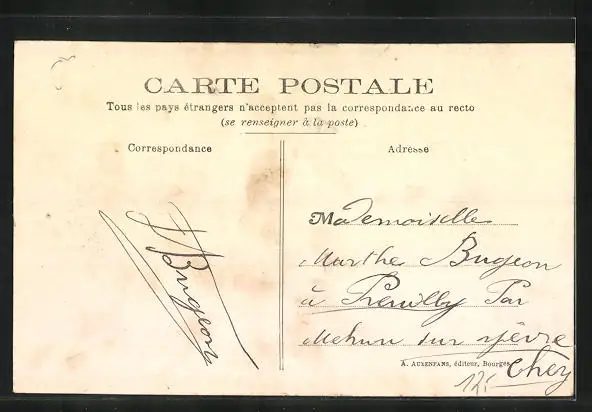 CARTE POSTALE
Tous les pays étrangers n'acceptent pas la correspondance au recto
(se renseigner à la poste)
Correspondance
Adresse
Bugeon
Mademoiselle
Marthe Bugeon
à Preuilly Par
Mehun sur yèvre
Cher
A. AUXENFANS, éditeur, Bourges
12.